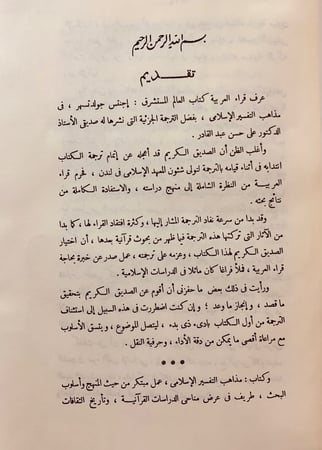 بسم الله الرحمن الرحيم
تقديم
عرف قراء العربية كتاب العالم المستشرق : إجنتس جولدتسهر ، فى
مذاهب التفسير الإسلامى ، بفضل الترجمة الجزئية التى نشرها له صديقى الأستاذ
الدكتور على حسن عبد القادر .
وأغلب الظن أن الصديق الكريم قد أعجله عن إتمام ترجمة الكتاب
انتدابه فى أثناء قيامه بالترجمة لتولى شئون للمعهد الإسلامى فى لندن ، فحرم قراء
العربية من النظرة الشاملة إلى منهج دراسته ، والاستفادة الكاملة من
نتائج بحثه .
وقد بدا من سرعة نفاد الترجمة المشار إليها ، وكثرة افتقاد القراء لها ، كما بدا
من الآثار التى تركتها هذه الترجمة فيما ظهر من بحوث قرآنية بعدها ، أن اختيار
الصديق الكريم لهذا الكتاب ، وعزمه على ترجمته ، عمل صدر عن خبرة بحاجة
قراء العربية ، فملأ فراغا كان ماثلا فى الدراسات الإسلامية .
ورأيت فى ذلك بعض ما حفزنى أن أقوم عن الصديق الكريم بتحقيق
ما قصد ، وإنجاز ما وعد ؛ وإن كنت اضطررت فى هذه السبيل إلى استئناف
الترجمة من أول الكتاب بادىء ذى بدء ، ليتصل الموضوع ، ويتسق الأسلوب
مع مراعاة أقصى ما يمكن من دقة الأداء ، وحرفية النقل .
* * *
وكتاب : مذاهب التفسير الإسلامى ، عمل مبتكر من حيث المنهج وأسلوب
البحث ، طريف فى عرض مناحى الدراسات القرآنية ، وتأريخ الثقافات